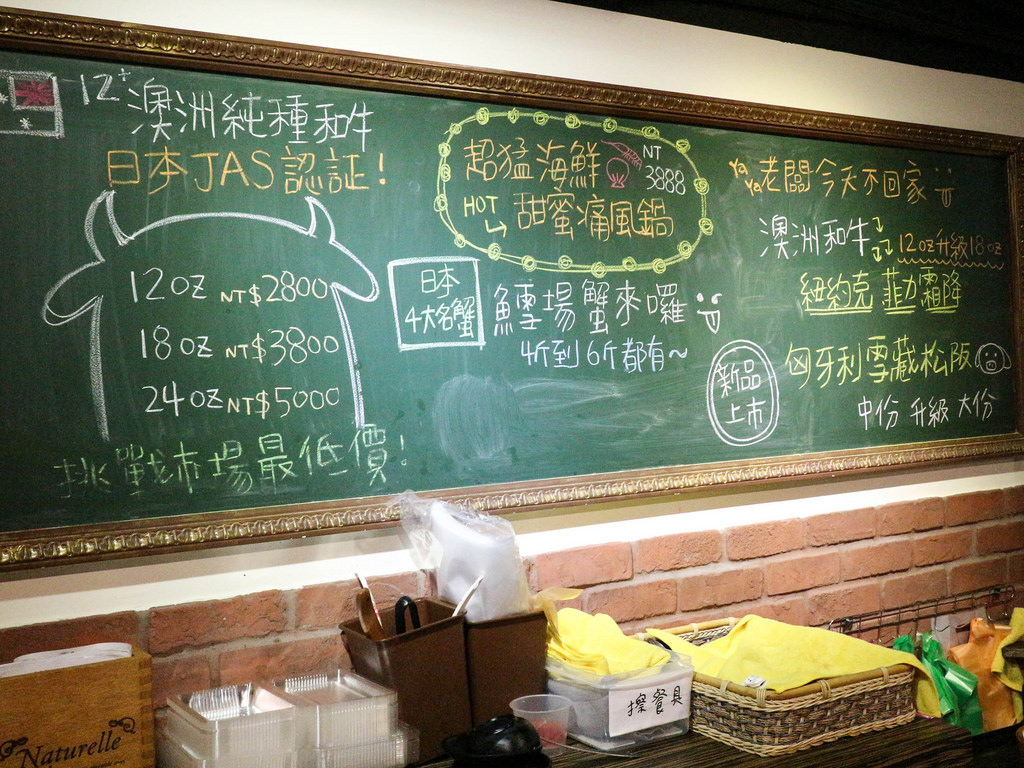 12+ 澳洲純種和牛
日本JAS認証!
12oz NT$2800
18oz NT$3800
24oz NT$5000
挑戰市場最低價!
超猛海鮮 NT 3888
HOT 甜蜜痛風鍋
日本
4大名蟹
鱈場蟹來囉
4斤到6斤都有~
YaYa 老闆今天不回家
澳洲和牛 12oz升級18oz
紐約克 菲力 霜降
新品
上市
匈牙利雪藏松阪
中份 升級 大份
擦餐具
Naturelle